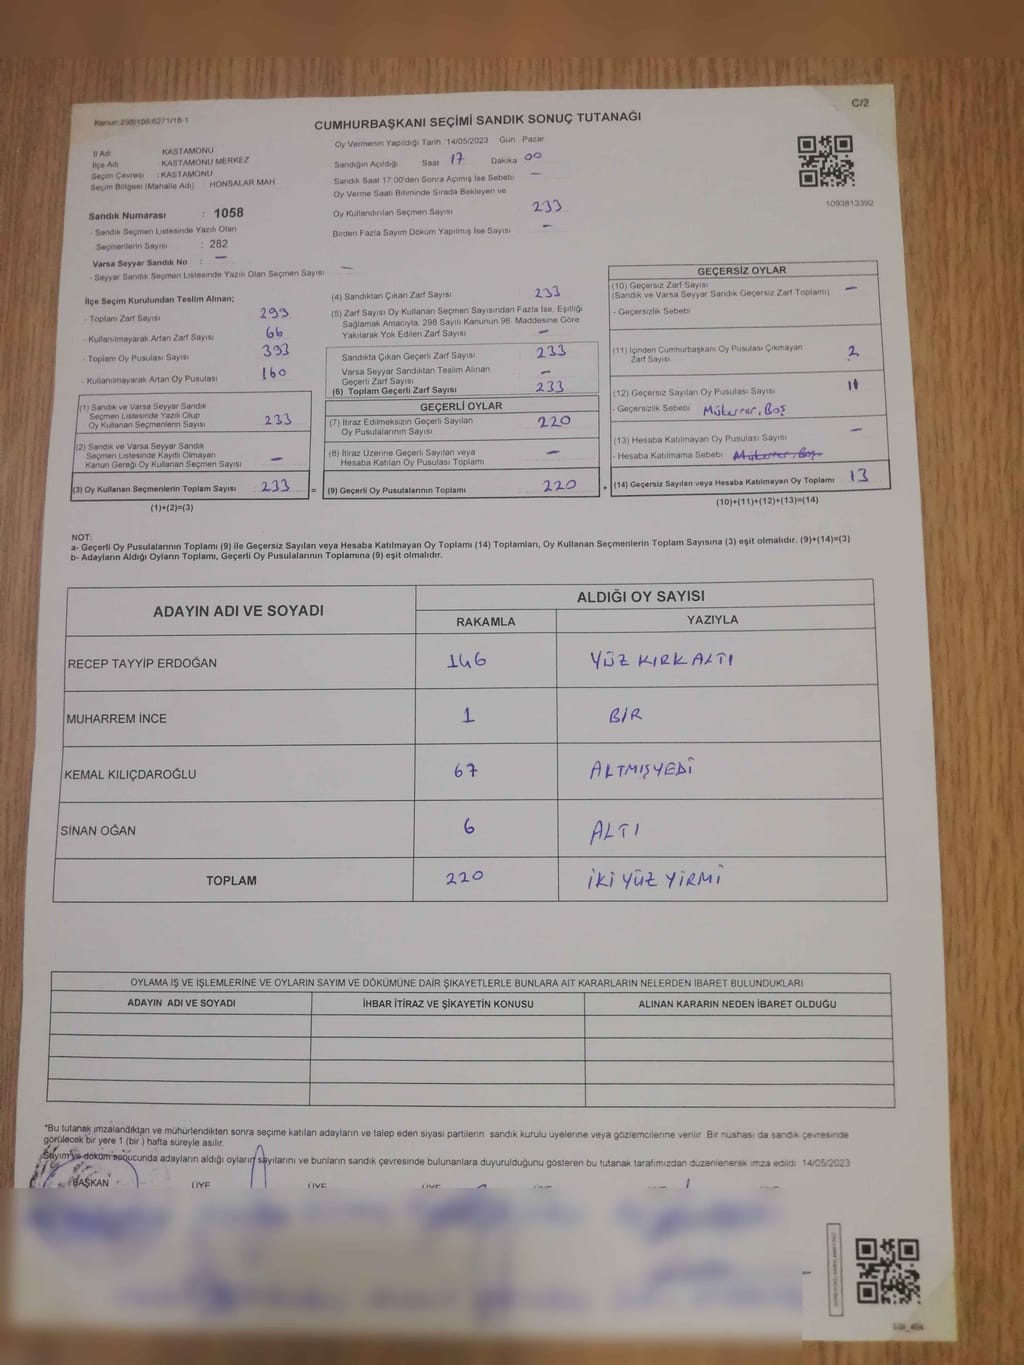 Kanun 298/105-6271/18-1
C/2
CUMHURBAŞKANI SEÇİMİ SANDIK SONUÇ TUTANAĞI
İl Adı KASTAMONU
İlçe Adı KASTAMONU MERKEZ
Seçim Çevresi : KASTAMONU
Seçim Bölgesi (Mahalle Adı) HONSALAR MAH
Sandık Numarası : 1058
- Sandık Seçmen Listesinde Yazılı Olan
Seçmenlerin Sayısı : 282
Varsa Seyyar Sandık No : -
- Seyyar Sandık Seçmen Listesinde Yazılı Olan Seçmen Sayısı -
Oy Vermenin Yapıldığı Tarih 14/05/2023 Gün Pazar
Sandığın Açıldığı Saat 17 Dakika 00
Sandık Saat 17:00'den Sonra Açımış İse Sebebi -
Oy Verme Saati Bitiminde Sırada Bekleyen ve
Oy Kullandırılan Seçmen Sayısı 233
Birden Fazla Sayım Döküm Yapılmış İse Sayısı -
1093813392
İlçe Seçim Kurulundan Teslim Alınan;
- Toplam Zarf Sayısı 299
- Kullanılmayarak Artan Zarf Sayısı 66
- Toplam Oy Pusulası Sayısı 393
- Kullanılmayarak Artan Oy Pusulası 160
(1) Sandık ve Varsa Seyyar Sandık
Seçmen Listesinde Yazılı Olup
Oy Kullanan Seçmenlerin Sayısı 233
(2) Sandık ve Varsa Seyyar Sandık
Seçmen Listesinde Kayıtlı Olmayan
Kanun Gereği Oy Kullanan Seçmen Sayısı -
(3) Oy Kullanan Seçmenlerin Toplam Sayısı 233 =
(1)+(2)=(3)
(4) Sandıktan Çıkan Zarf Sayısı 233
(5) Zarf Sayısı Oy Kullanan Seçmen Sayısından Fazla İse, Eşitliği
Sağlamak Amacıyla, 298 Sayılı Kanunun 98. Maddesine Göre
Yakılarak Yok Edilen Zarf Sayısı -
Sandıkta Çıkan Geçerli Zarf Sayısı 233
Varsa Seyyar Sandıktan Teslim Alınan
Geçerli Zarf Sayısı -
(6) Toplam Geçerli Zarf Sayısı 233
GEÇERLİ OYLAR
(7) İtiraz Edilmeksizin Geçerli Sayılan
Oy Pusulalarının Sayısı 220
(8) İtiraz Üzerine Geçerli Sayılan veya
Hesaba Katılan Oy Pusulası Toplamı -
(9) Geçerli Oy Pusulalarının Toplamı 220 +
GEÇERSİZ OYLAR
(10) Geçersiz Zarf Sayısı
(Sandık ve Varsa Seyyar Sandık Geçersiz Zarf Toplamı) -
- Geçersizlik Sebebi
(11) İçinden Cumhurbaşkanı Oy Pusulası Çıkmayan
Zarf Sayısı 2
(12) Geçersiz Sayılan Oy Pusulası Sayısı 11
- Geçersizlik Sebebi Mükerrer, Boş
(13) Hesaba Katılmayan Oy Pusulası Sayısı -
- Hesaba Katılmama Sebebi Mükerrer, Boş
(14) Geçersiz Sayılan veya Hesaba Katılmayan Oy Toplamı 13
(10)+(11)+(12)+(13)=(14)
NOT:
a- Geçerli Oy Pusulalarının Toplamı (9) ile Geçersiz Sayılan veya Hesaba Katılmayan Oy Toplamı (14) Toplamları, Oy Kullanan Seçmenlerin Toplam Sayısına (3) eşit olmalıdır. (9)+(14)=(3)
b- Adayların Aldığı Oyların Toplamı, Geçerli Oy Pusulalarının Toplamına (9) eşit olmalıdır.
ADAYIN ADI VE SOYADI ALDIĞI OY SAYISI
RAKAMLA YAZIYLA
RECEP TAYYİP ERDOĞAN 146 YÜZ KIRK ALTI
MUHARREM İNCE 1 BİR
KEMAL KILIÇDAROĞLU 67 ALTMIŞYEDİ
SİNAN OĞAN 6 ALTI
TOPLAM 220 İKİ YÜZ YİRMİ
OYLAMA İŞ VE İŞLEMLERİNE VE OYLARIN SAYIM VE DÖKÜMÜNE DAİR ŞİKAYETLERLE BUNLARA AİT KARARLARIN NELERDEN İBARET BULUNDUKLARI
ADAYIN ADI VE SOYADI İHBAR İTİRAZ VE ŞİKAYETİN KONUSU ALINAN KARARIN NEDEN İBARET OLDUĞU
*Bu tutanak imzalandıktan ve mühürlendikten sonra seçime katılan adayların ve talep eden siyasi partilerin sandık kurulu üyelerine veya gözlemcilerine verilir. Bir nushası da sandık çevresinde
görülecek bir yere 1 (bir ) hafta süreyle asılır.
Sayım ve döküm sonucunda adayların aldığı oyların sayılarını ve bunların sandık çevresinde bulunanlara duyurulduğunu gösteren bu tutanak tarafımızdan düzenlenerek imza edildi. 14/05/2023
BAŞKAN ÜYE ÜYE ÜYE